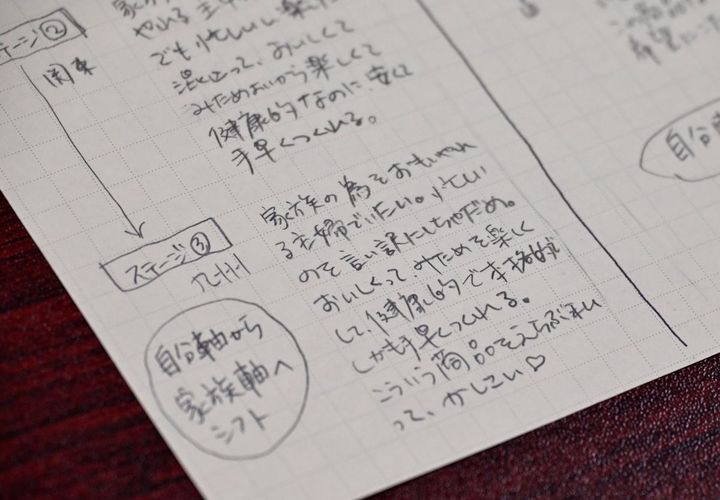 ステージ②
関東
家
やれる主
でも忙しい
混って, おいしくて
みためもいいから楽しくて
健康的なのに、安くて
手早くつくれる。
ステージ③
九州
家族の為をおもいやれ
る主婦でいたい。忙しい
のを言い訳にしちゃだめ。
おいしくってみためも楽しく
して、健康的で本格的で
しかも手早くつくれる。
こういう商品をえらぶわた
って、かしこい♡
自分軸から
家族軸へ
シフト
自分軸